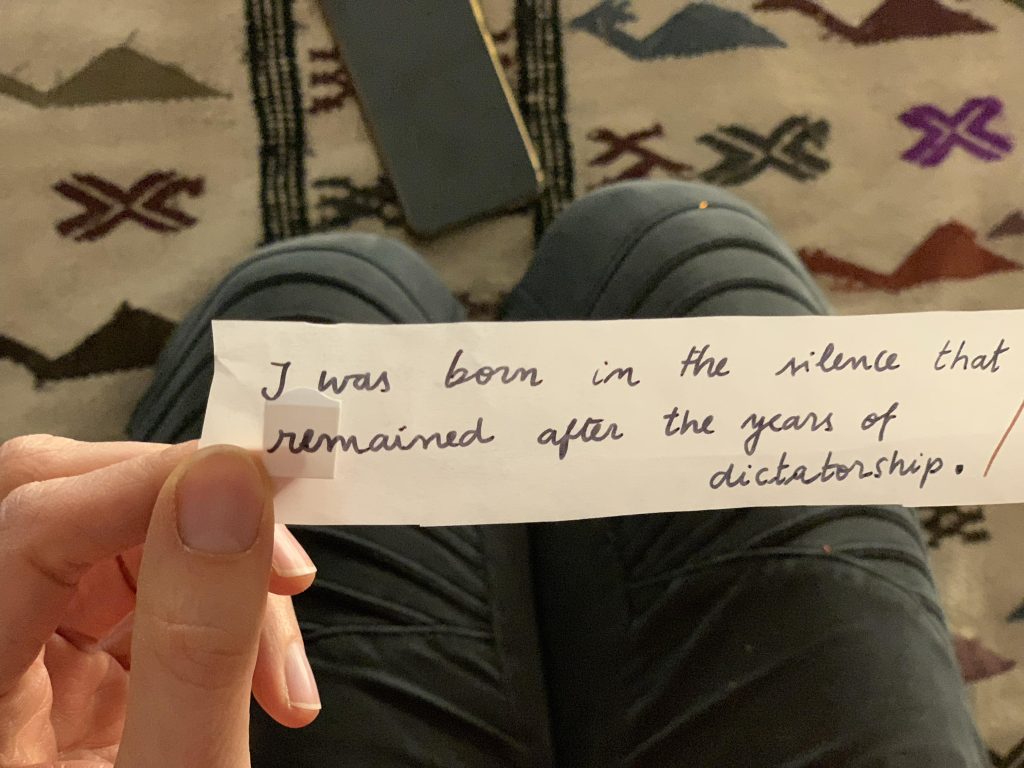 I was born in the silence that
remained after the years of
dictatorship.